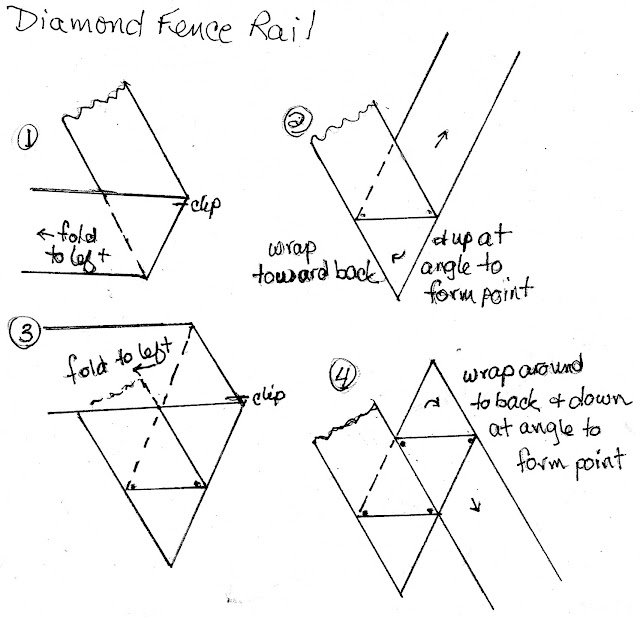 Diamond Fence Rail
①
clip
← fold
to left
②
wrap
toward back
& up at
angle to
form point
③
fold to left
clip
④
wrap around
to back & down
at angle to
form point